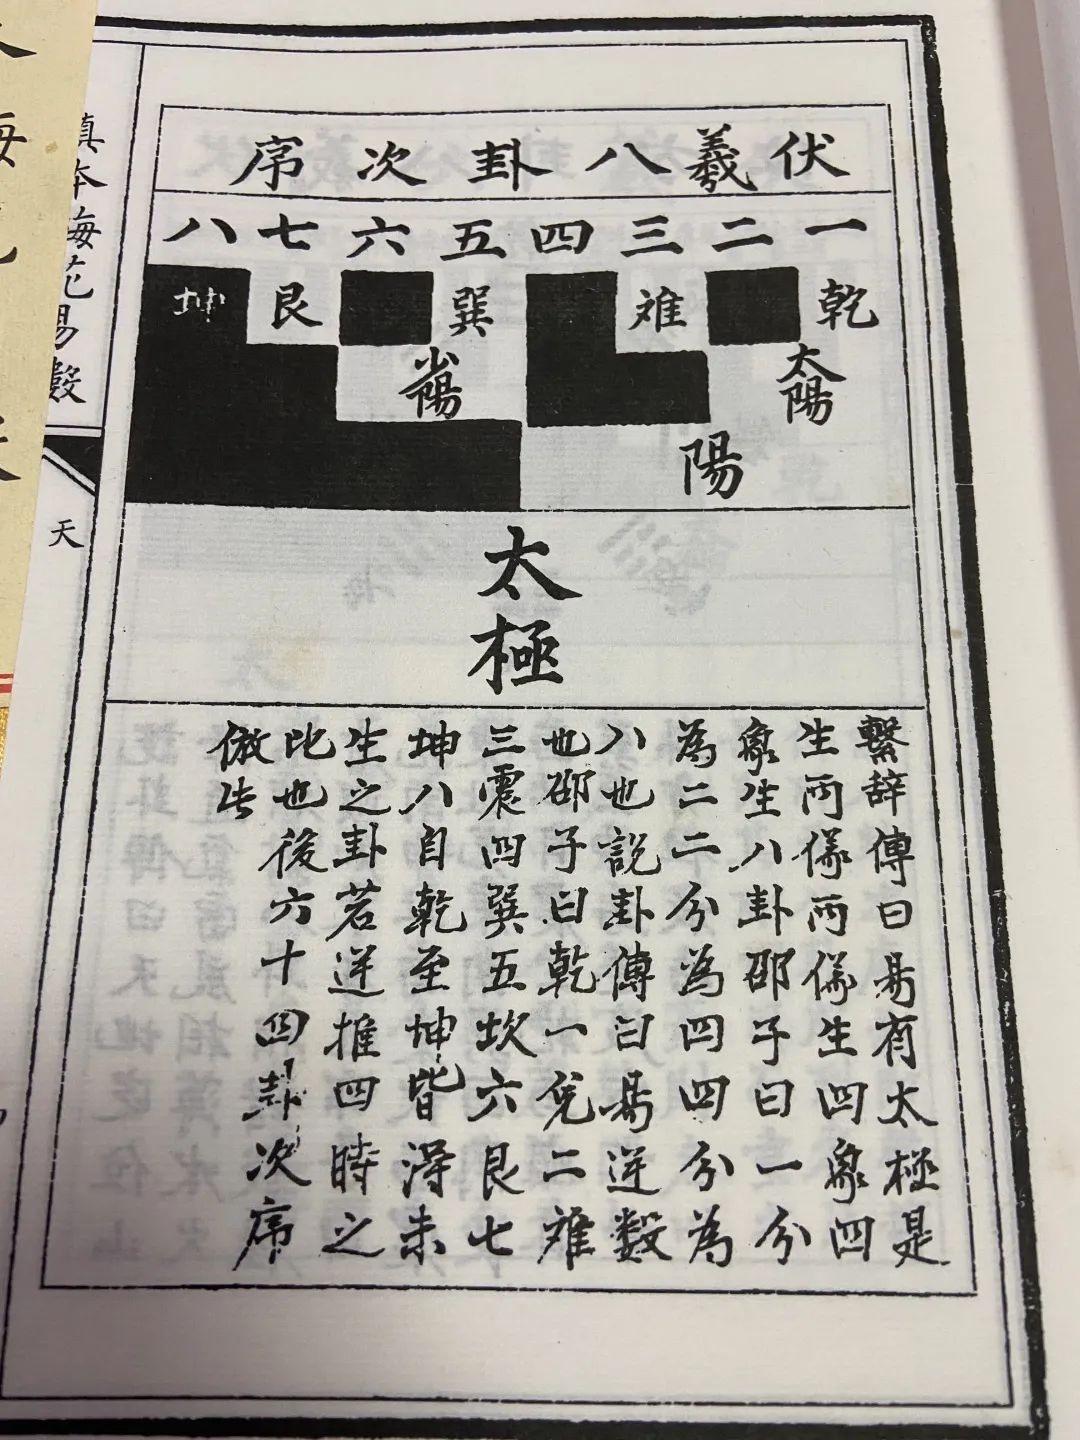 伏羲八卦次序
一二三四五六七八
乾離巽艮坤
太陽
少陽
陽
太極
繫辞傳曰易有太極是
生兩儀兩儀生四象四
象生八卦邵子曰一分
為二二分為四四分為
八也說卦傳曰易逆數
也邵子曰乾一兌二離
三震四巽五坎六艮七
坤八自乾至坤皆得未
生之卦若逆推四時之
比也後六十四卦次序
倣此
真本梅花易數
天